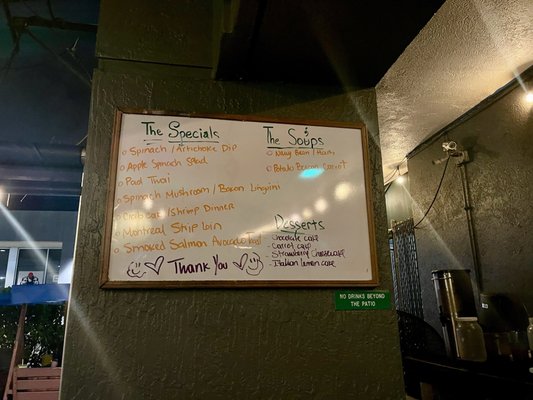 The Specials
Spinach / Artichoke Dip
Apple Spinach Salad
Pad Thai
Spinach Mushroom / Bacon Linguini
Crab cake / Shrimp Dinner
Montreal Strip Loin
Smoked Salmon Avocado Toast
Thank You
The Soups
Navy Bean / Ham
Potato Bacon Carrot
Desserts
- Chocolate cake
- Carrot cake
- Strawberry Cheesecake
- Italian lemon cake
NO DRINKS BEYOND
THE PATIO